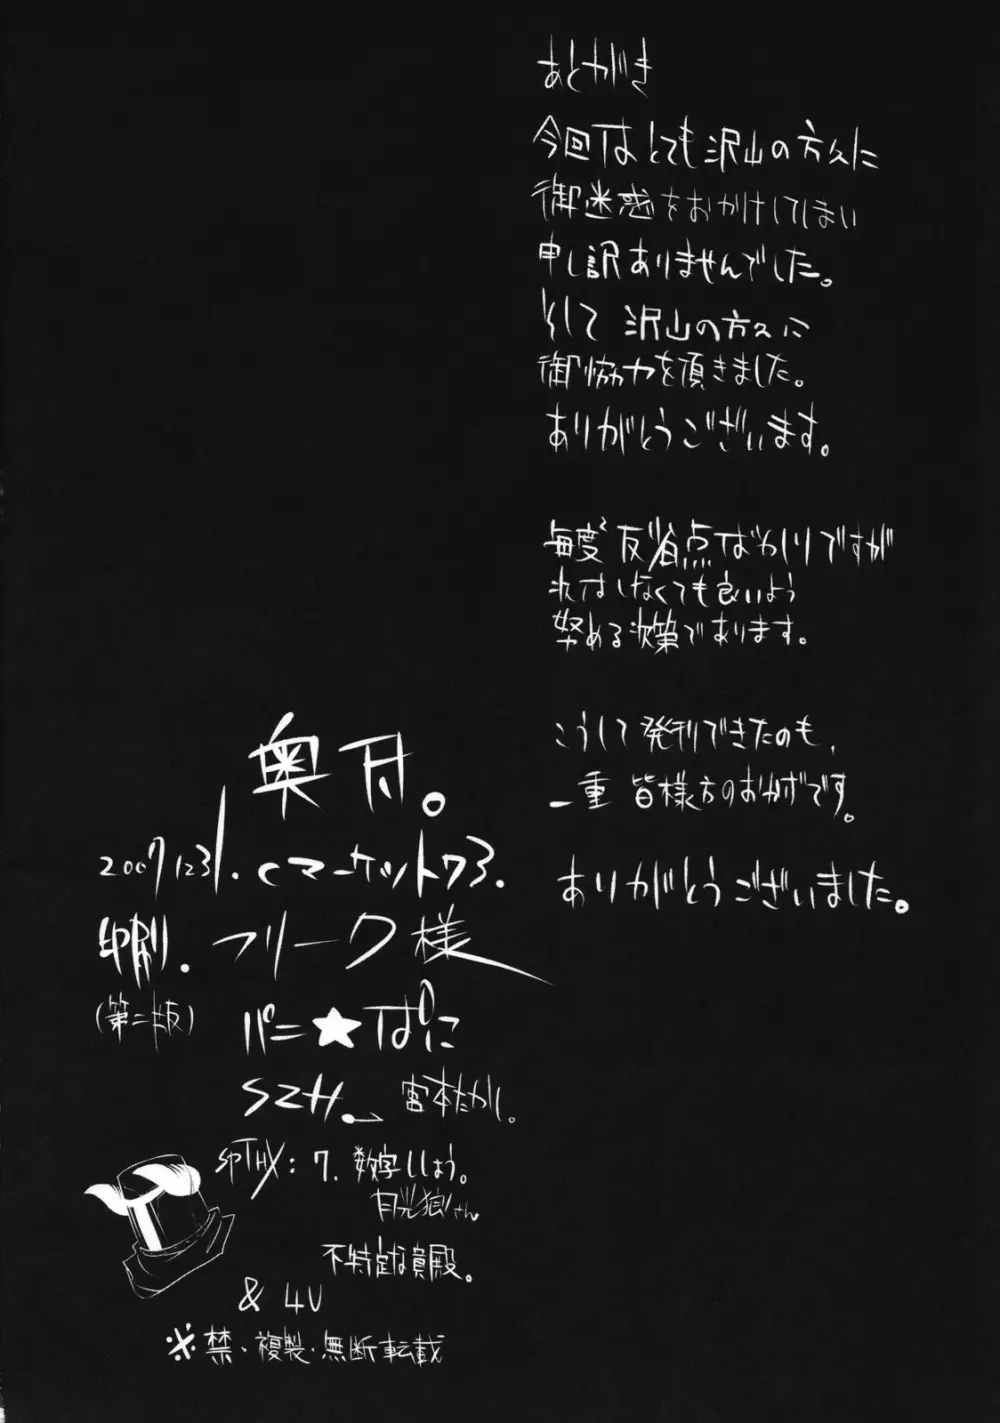 あとがき
今回はとても沢山の方々に
御迷惑をおかけしてしまい
申し訳ありませんでした。
そして沢山の方々に
御協力を頂きました。
ありがとうございます。
毎度反省点ばかりですが
それはしなくても良いよう
努める次第であります。
こうして発刊できたのも、
一重皆様方のおかげです。
ありがとうございました。
奥付。
2007 1231. cマーケット73.
印刷. フリーク様
(第二版)
パニ★ぱに
SZH. 宮本たかし。
SPTHX: 7. 数字しょう。
月光狼さん
不特定な員殿。
& 4U
※禁・複製・無断転載